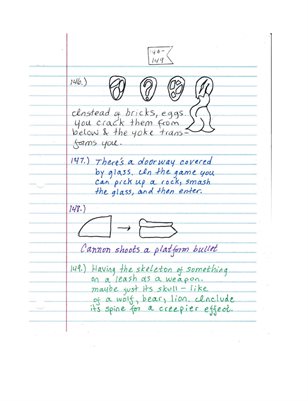 146-
149
146.)
Instead of bricks, eggs.
You crack them from
below & the yoke trans-
forms you.
147.) There's a doorway covered
by glass. In the game you
can pick up a rock, smash
the glass, and then enter.
148.)
Cannon shoots a platform bullet
149.) Having the skeleton of something
on a leash as a weapon.
maybe just its skull - like
of a wolf, bear, lion. Include
it's spine for a creepier effect.